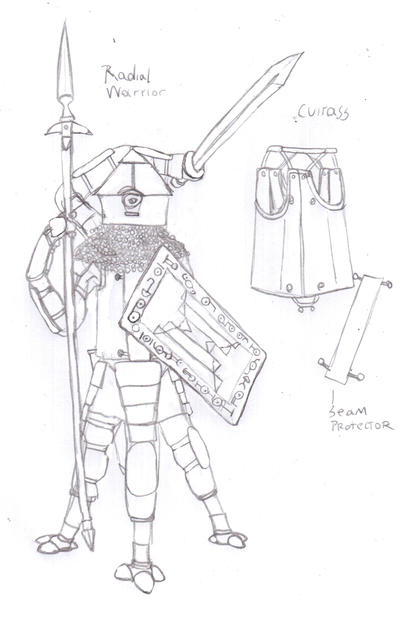 Radial
Warrior
Cuirass
Seam
Protector